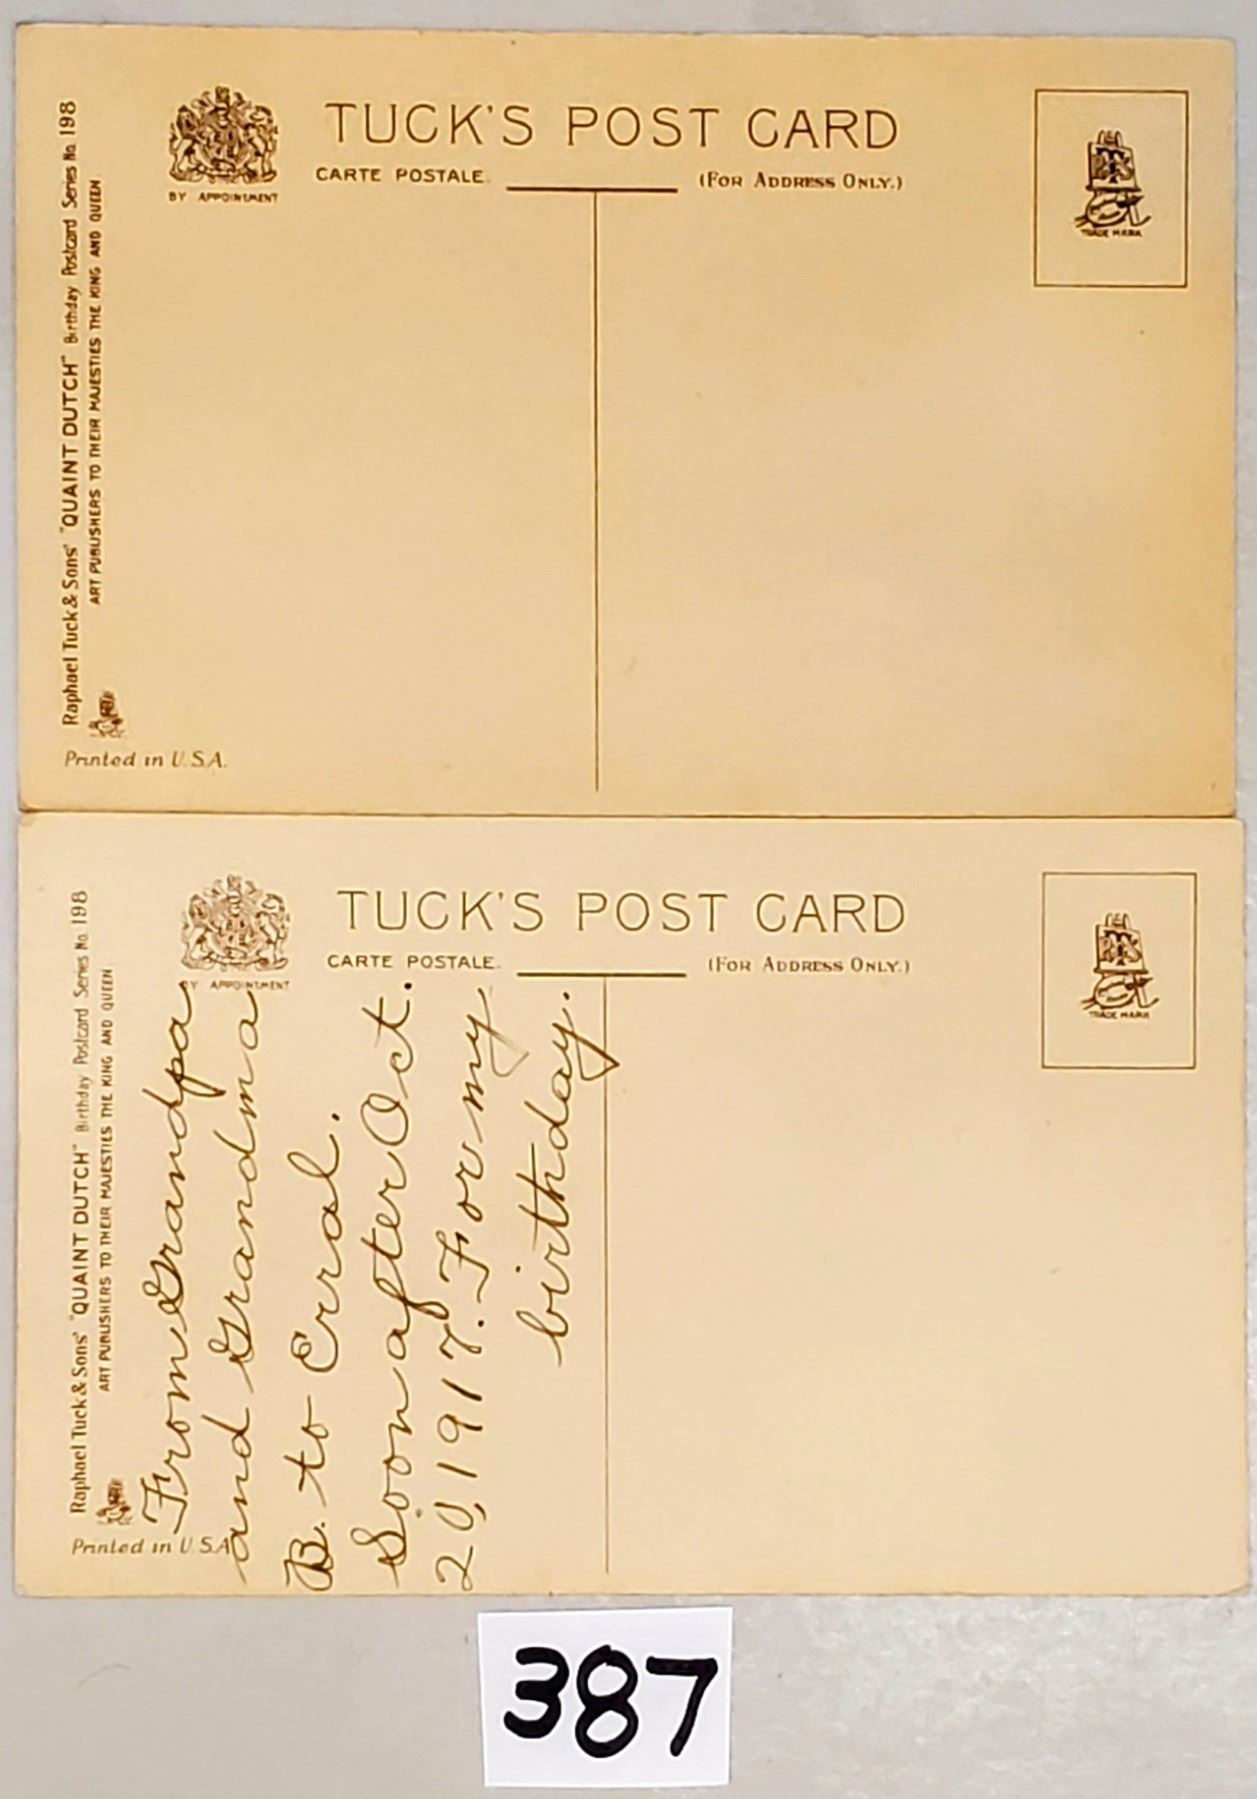 Raphael Tuck & Sons' "QUAINT DUTCH" Birthday Postcard Series No. 198
ART PUBLISHERS TO THEIR MAJESTIES THE KING AND QUEEN
Printed in U.S.A.
BY APPOINTMENT
TUCK'S POST CARD
CARTE POSTALE.
(FOR ADDRESS ONLY.)
TRADE MARK
Raphael Tuck & Sons' "QUAINT DUTCH" Birthday Postcard Series No. 198
ART PUBLISHERS TO THEIR MAJESTIES THE KING AND QUEEN
Printed in U.S.A.
BY APPOINTMENT
TUCK'S POST CARD
CARTE POSTALE.
(FOR ADDRESS ONLY.)
TRADE MARK
From Grandpa
and Grandma
B. to Erral.
Soon after Oct.
20, 1917. For my
birthday.
387